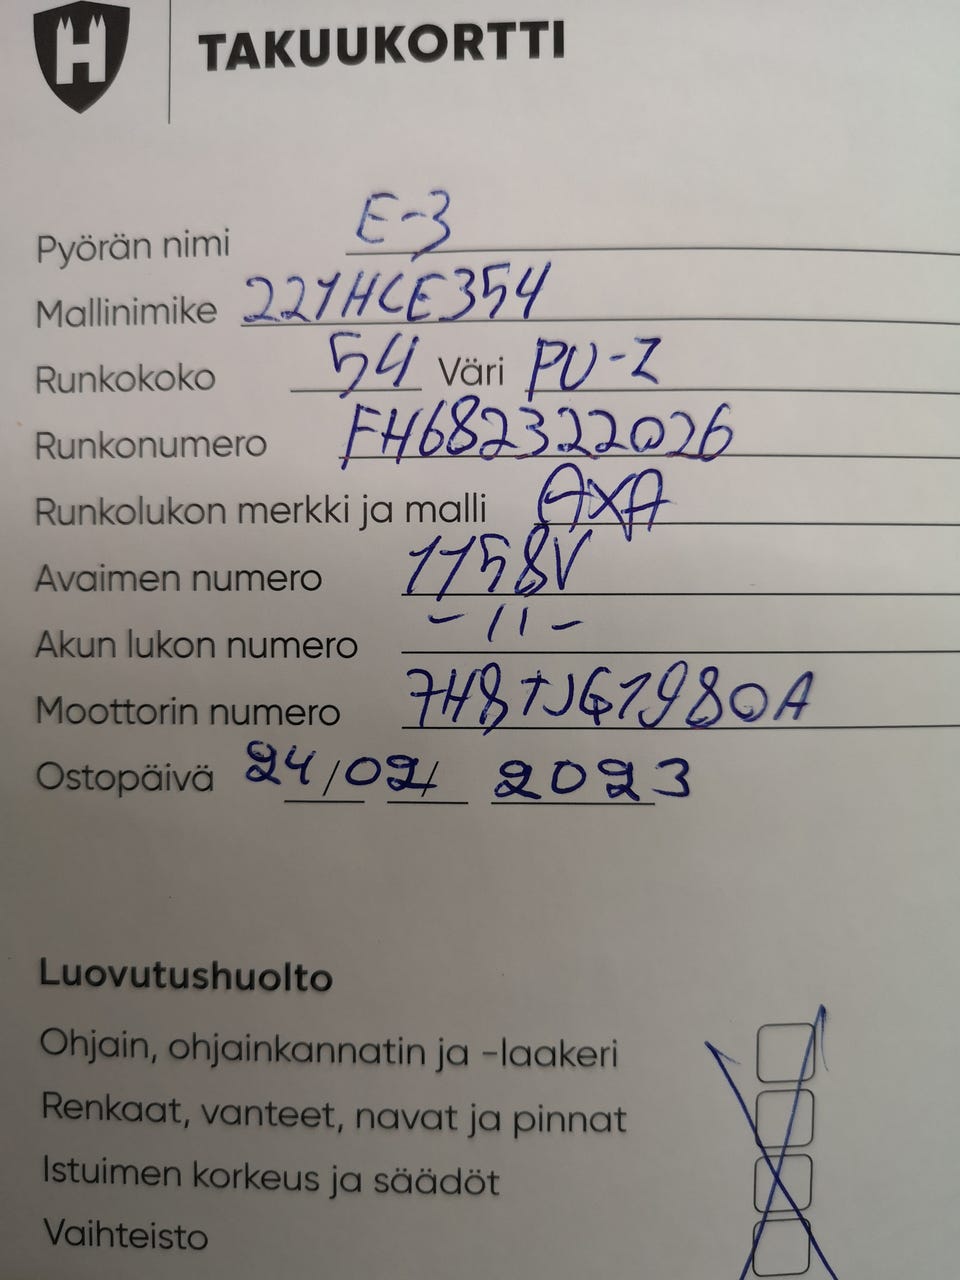 H
TAKUUKORTTI
Pyörän nimi E-3
Mallinimike 221HCE354
Runkokoko 54 Väri PU-Z
Runkonumero FH682322026
Runkolukon merkki ja malli AXA
Avaimen numero 1158V
Akun lukon numero -11-
Moottorin numero 7H8TJG1980A
Ostopäivä 24/02/2023
Luovutushuolto
Ohjain, ohjainkannatin ja -laakeri
Renkaat, vanteet, navat ja pinnat
Istuimen korkeus ja säädöt
Vaihteisto